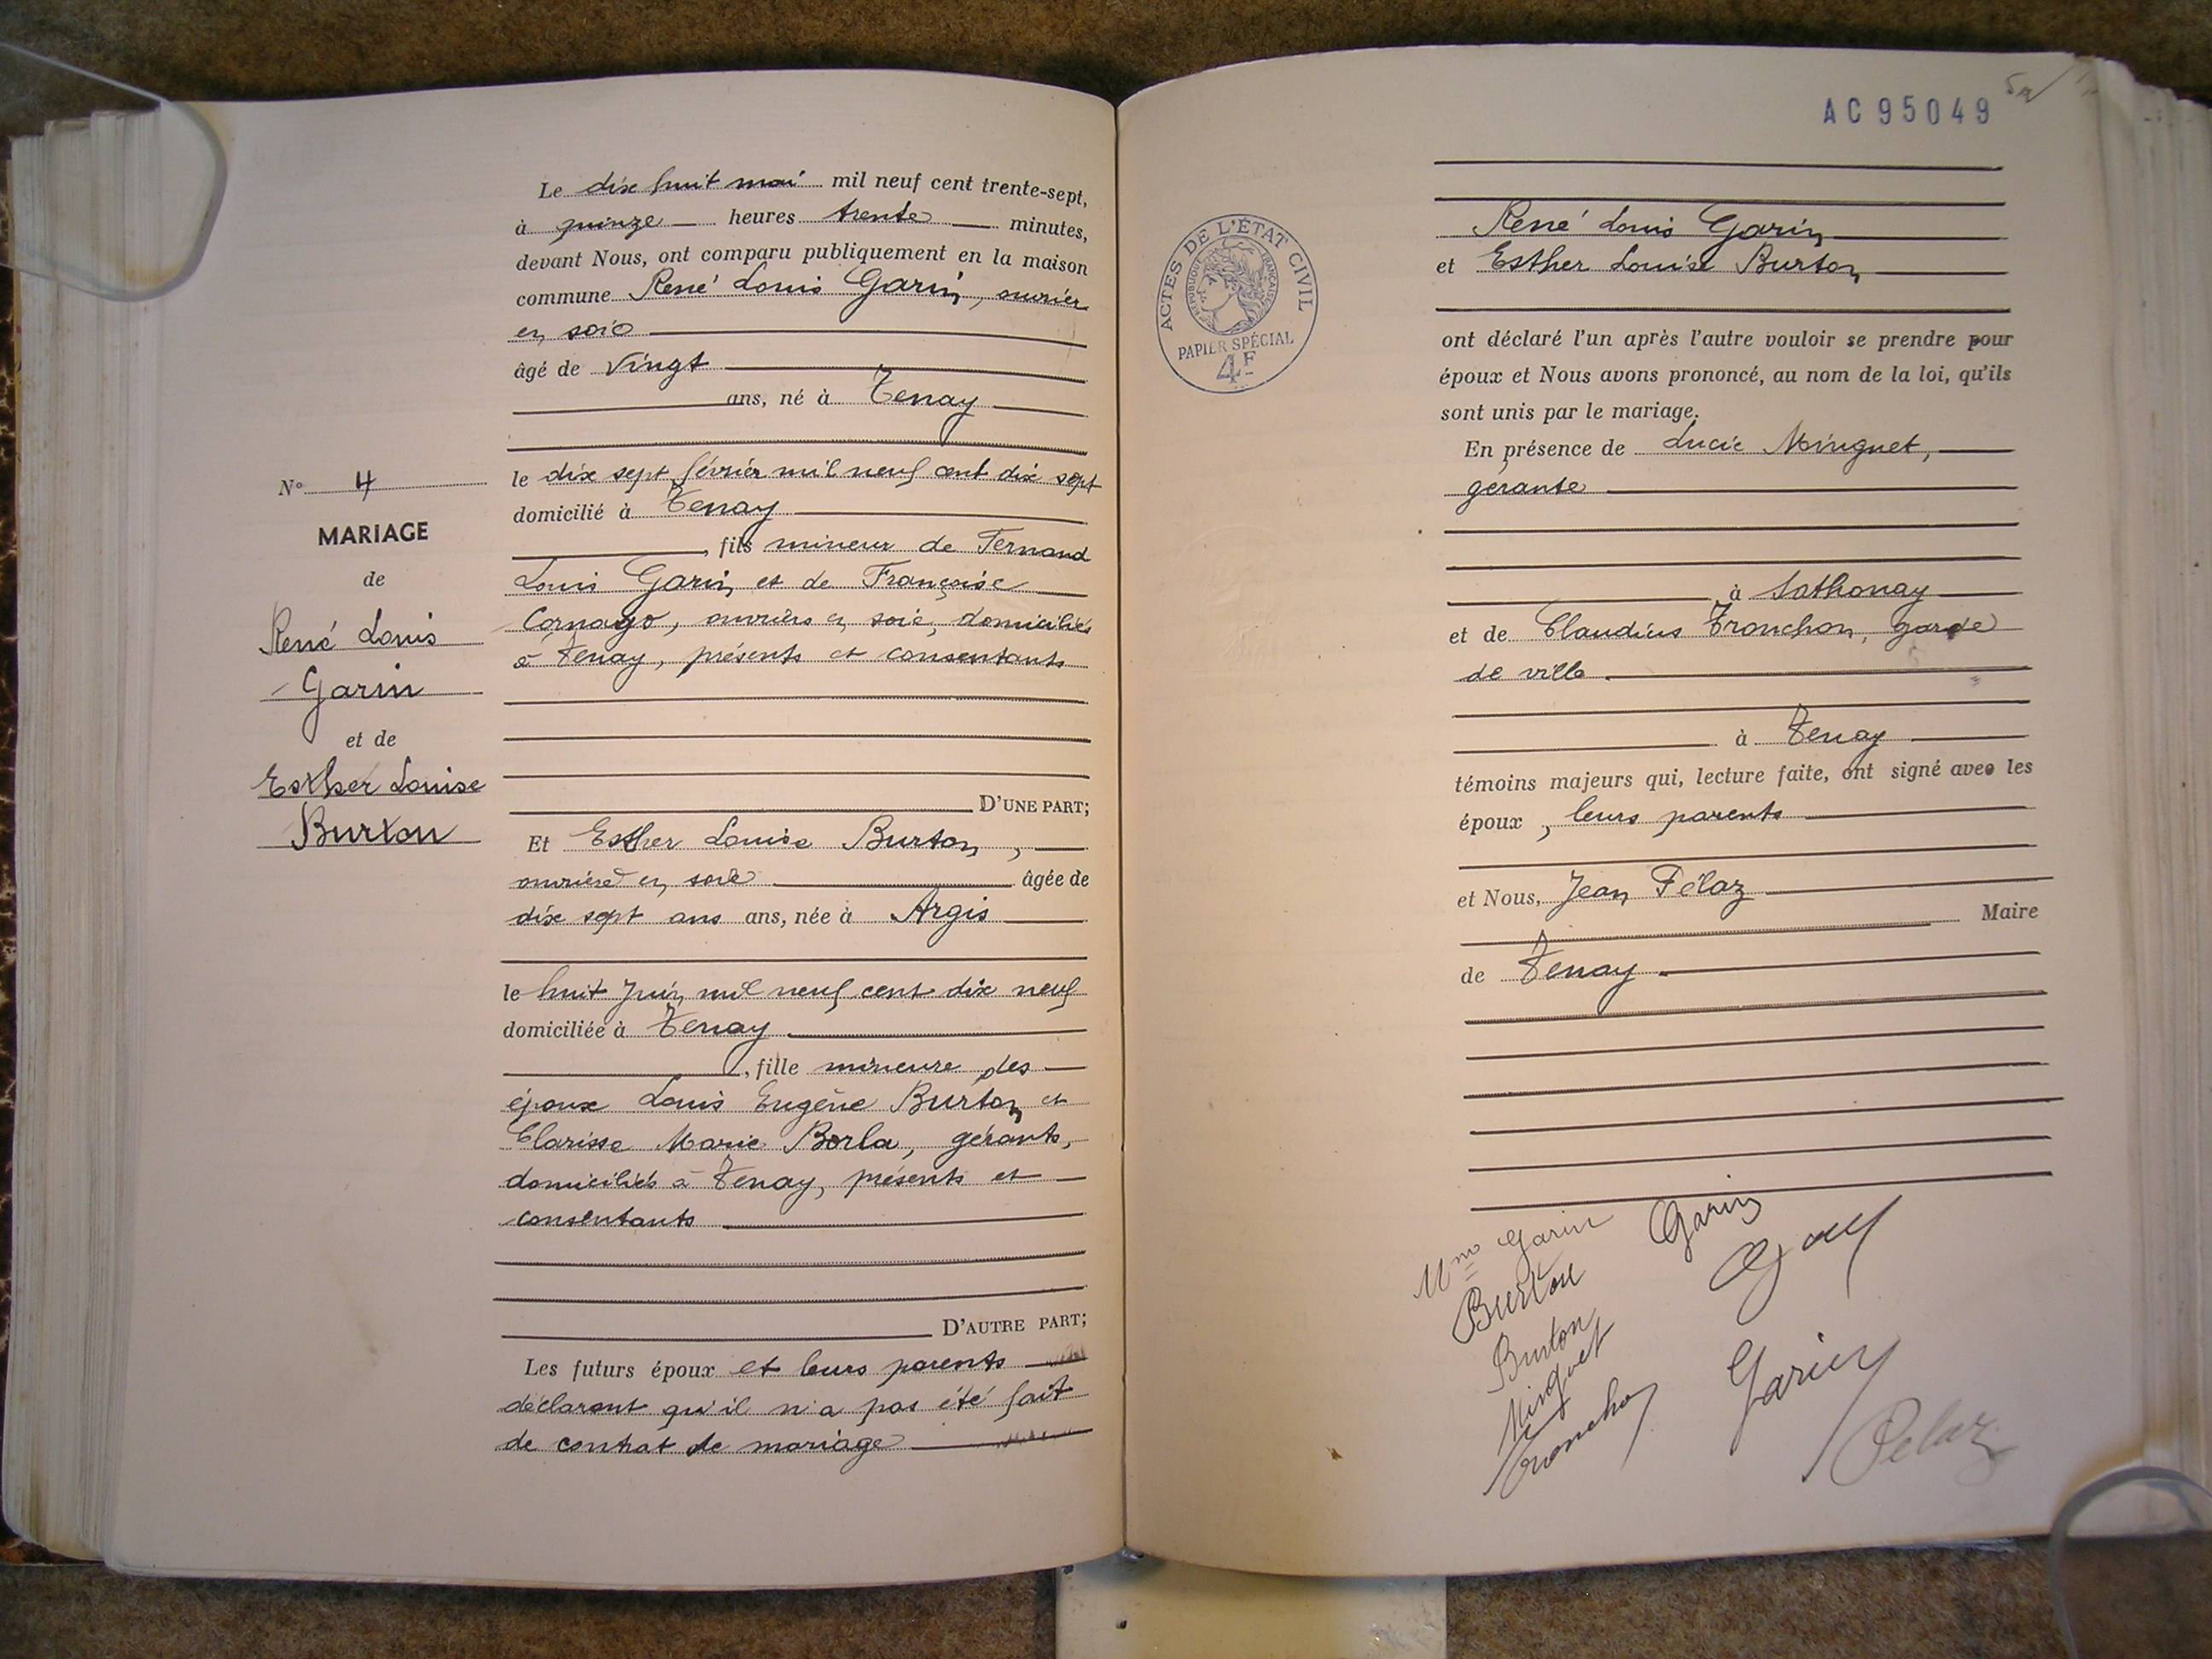 Le dix huit mai mil neuf cent trente-sept,
à quinze heures trente minutes,
devant Nous, ont comparu publiquement en la maison
commune René Louis Garin, ouvrier
en soie
âgé de vingt
ans, né à Tenay
le dix sept février mil neuf cent dix sept
domicilié à Tenay
, fils mineur de Fernand
Louis Garin et de Françoise
Cornago, ouvriers en soie, domiciliés
à Tenay, présents et consentants
D'UNE PART;
N° 4
MARIAGE
de
René Louis
Garin
et de
Esther Louise
Burton
Et Esther Louise Burton,
ouvrière en soie âgée de
dix sept ans ans, née à Argis
le huit Juin mil neuf cent dix neuf
domiciliée à Tenay
, fille mineure des
époux Louis Eugène Burton et
Clarisse Marie Borla, gérants,
domiciliés à Tenay, présents et
consentants
D'AUTRE PART;
Les futurs époux et leurs parents
déclarent qu'il n'a pas été fait
de contrat de mariage
AC95049
ACTES DE L'ÉTAT CIVIL
RÉPUBLIQUE FRANÇAISE
PAPIER SPÉCIAL
4F
René Louis Garin
et Esther Louise Burton
ont déclaré l'un après l'autre vouloir se prendre pour
époux et Nous avons prononcé, au nom de la loi, qu'ils
sont unis par le mariage.
En présence de Lucie Minguet,
gérante
à Sathonay
et de Claudius Tronchon, garde
de ville.
à Tenay
témoins majeurs qui, lecture faite, ont signé avec les
époux, leurs parents
et Nous, Jean Pélaz
Maire
de Tenay.
Mme Garin
Garin
Burton
Burton
Minguet
Garin
Tronchon
Pelaz